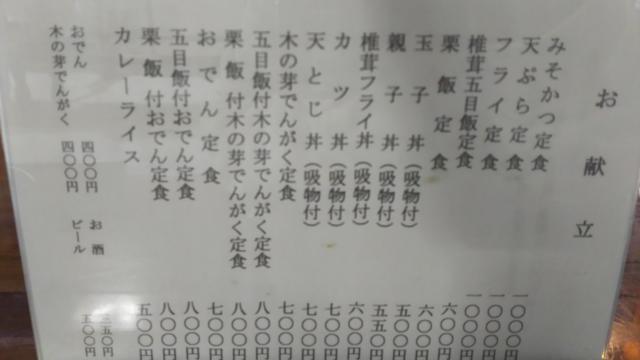 お献立
みそかつ定食 一〇〇〇
天ぷら定食 一〇〇〇
フライ定食 一〇〇〇
椎茸五目飯定食 六〇〇
栗飯定食 六〇〇円
玉子丼(吸物付) 五〇〇円
親子丼(吸物付) 五五〇
椎茸フライ丼(吸物付) 六〇〇
カツ丼(吸物付) 七〇〇円
天とじ丼(吸物付) 七〇〇円
木の芽でんがく定食 七〇〇円
五目飯付木の芽でんがく定食 八〇〇円
栗飯付木の芽でんがく定食 八〇〇円
おでん定食 七〇〇円
五目飯付おでん定食 八〇〇円
栗飯付おでん定食 八〇〇円
カレーライス 五〇〇円
おでん 四〇〇円
木の芽でんがく 四〇〇円
お酒 三五〇円
ビール 五〇〇円